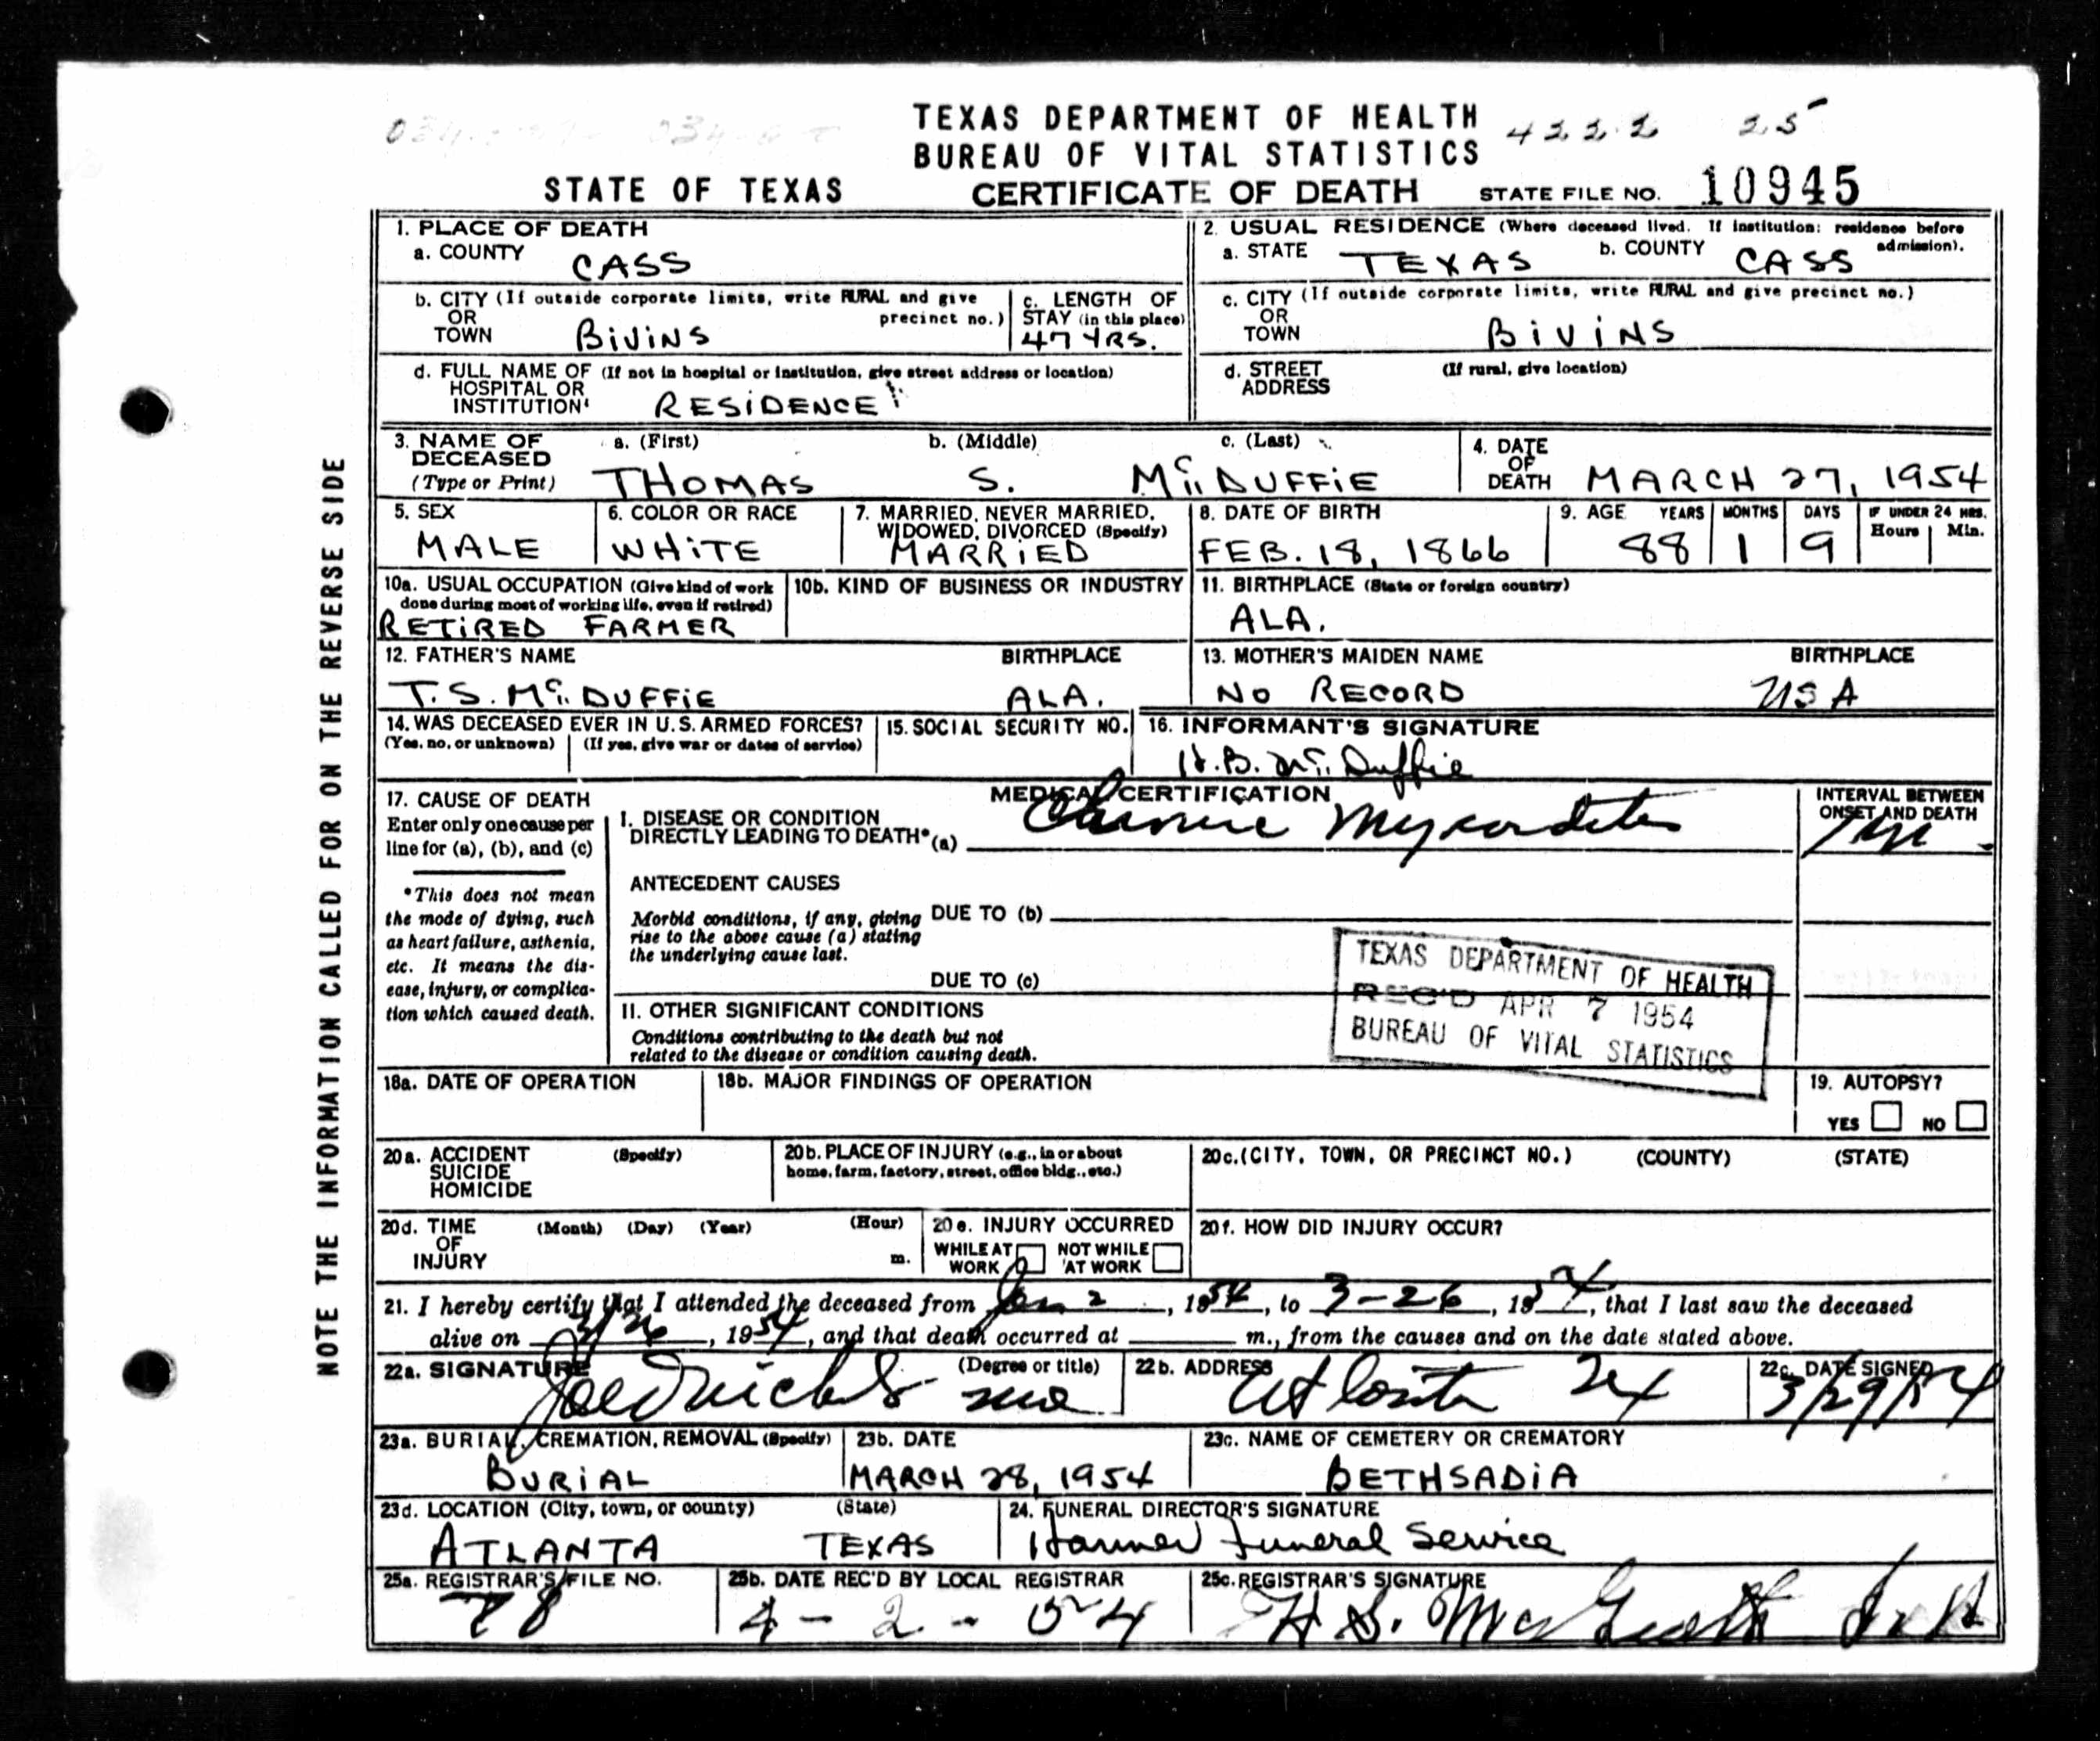 TEXAS DEPARTMENT OF HEALTH
BUREAU OF VITAL STATISTICS
4222 25
STATE OF TEXAS CERTIFICATE OF DEATH STATE FILE NO. 10945
NOTE THE INFORMATION CALLED FOR ON THE REVERSE SIDE
1. PLACE OF DEATH
a. COUNTY CASS
2. USUAL RESIDENCE (Where deceased lived. If institution: residence before admission).
a. STATE TEXAS b. COUNTY CASS
b. CITY (If outside corporate limits, write RURAL and give precinct no.)
OR
TOWN BIVINS
c. LENGTH OF
STAY (in this place)
47 YRS.
c. CITY (If outside corporate limits, write RURAL and give precinct no.)
OR
TOWN BIVINS
d. FULL NAME OF (If not in hospital or institution, give street address or location)
HOSPITAL OR
INSTITUTION RESIDENCE
d. STREET (If rural, give location)
ADDRESS
3. NAME OF DECEASED (Type or Print)
a. (First) b. (Middle) c. (Last)
THOMAS S. Mc. DUFFIE
4. DATE
OF
DEATH MARCH 27, 1954
5. SEX
MALE
6. COLOR OR RACE
WHITE
7. MARRIED, NEVER MARRIED,
WIDOWED, DIVORCED (Specify)
MARRIED
8. DATE OF BIRTH
FEB. 18, 1866
9. AGE YEARS MONTHS DAYS IF UNDER 24 HRS.
Hours Min.
88 1 9
10a. USUAL OCCUPATION (Give kind of work
done during most of working life, even if retired)
RETIRED FARMER
10b. KIND OF BUSINESS OR INDUSTRY
11. BIRTHPLACE (State or foreign country)
ALA.
12. FATHER'S NAME BIRTHPLACE
T.S. Mc. DUFFIE ALA.
13. MOTHER'S MAIDEN NAME BIRTHPLACE
NO RECORD USA
14. WAS DECEASED EVER IN U.S. ARMED FORCES?
(Yes, no, or unknown) (If yes, give war or dates of service)
15. SOCIAL SECURITY NO.
16. INFORMANT'S SIGNATURE
H.B. Mc. Duffie
MEDICAL CERTIFICATION
17. CAUSE OF DEATH
Enter only one cause per
line for (a), (b), and (c)
*This does not mean
the mode of dying, such
as heart failure, asthenia,
etc. It means the dis-
ease, injury, or complica-
tion which caused death.
I. DISEASE OR CONDITION
DIRECTLY LEADING TO DEATH* (a) Chronic Myocarditis
INTERVAL BETWEEN
ONSET AND DEATH
ANTECEDENT CAUSES
Morbid conditions, if any, giving
rise to the above cause (a) stating
the underlying cause last.
DUE TO (b)
DUE TO (c)
II. OTHER SIGNIFICANT CONDITIONS
Conditions contributing to the death but not
related to the disease or condition causing death.
TEXAS DEPARTMENT OF HEALTH
REC'D APR 7 1954
BUREAU OF VITAL STATISTICS
18a. DATE OF OPERATION
18b. MAJOR FINDINGS OF OPERATION
19. AUTOPSY?
YES NO
20a. ACCIDENT (Specify)
SUICIDE
HOMICIDE
20b. PLACE OF INJURY (e.g., in or about
home, farm, factory, street, office bldg., etc.)
20c. (CITY, TOWN, OR PRECINCT NO.) (COUNTY) (STATE)
20d. TIME (Month) (Day) (Year) (Hour)
OF
INJURY m.
20e. INJURY OCCURRED
WHILE AT WORK NOT WHILE AT WORK
20f. HOW DID INJURY OCCUR?
21. I hereby certify that I attended the deceased from Jan 2, 1954, to 3-26, 1954, that I last saw the deceased
alive on 3/26, 1954, and that death occurred at m., from the causes and on the date stated above.
22a. SIGNATURE (Degree or title)
Joe D Nichols MD
22b. ADDRESS
Atlanta Tex
22c. DATE SIGNED
3/29/54
23a. BURIAL, CREMATION, REMOVAL (Specify)
BURIAL
23b. DATE
MARCH 28, 1954
23c. NAME OF CEMETERY OR CREMATORY
BETHSADIA
23d. LOCATION (City, town, or county) (State)
ATLANTA TEXAS
24. FUNERAL DIRECTOR'S SIGNATURE
Hanner Funeral Service
25a. REGISTRAR'S FILE NO.
78
25b. DATE REC'D BY LOCAL REGISTRAR
4-2-54
25c. REGISTRAR'S SIGNATURE
H S.